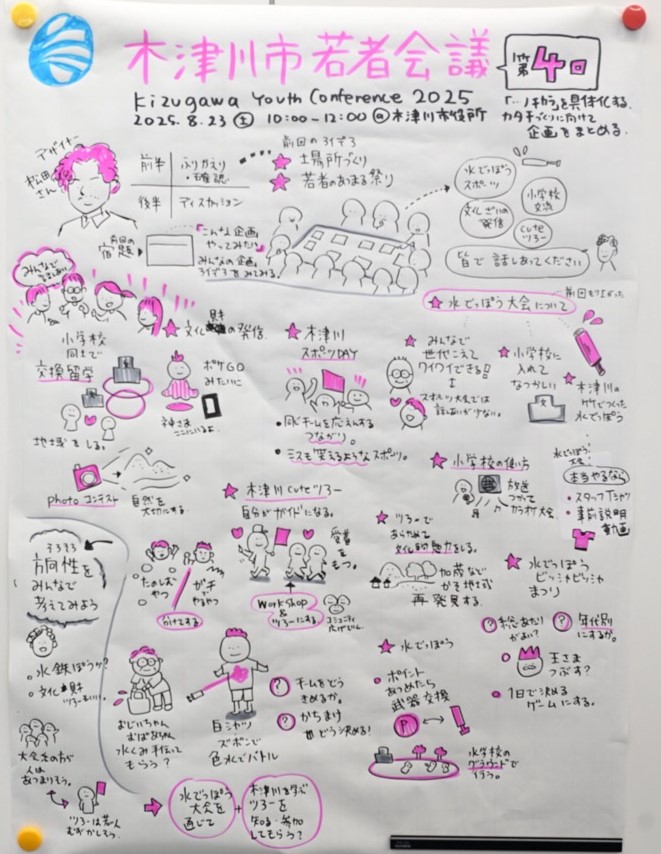 木津川市若者会議
第4回
Kizugawa Youth Conference 2025
2025.8.23(土) 10:00-12:00 @木津川市役所
を具体化する.
カタチづくりに向けて
企画をまとめる.
デザイナー
松田
さん
前半
ふりかえり
・確認
後半
ディスカッション
土場所づくり
若者のあつまる祭り
前回の
宿題
「こんな企画、
やってみたい」
みんなの企画、
水でっぽう
スポーツ
小学校
交流
文化ざいの
発信
cute
ツアー
皆で話しあってください
水でっぽう大会について
前回もり上がった
みんなで
文化財の発信.
小学校
同士で
交換留学
地域をしる.
ポケGO
みたいに
神さま
ここにいるよ.
木津川
スポーツDAY
・同じチームを応えんする
つながり。
・ミスも笑えるようなスポーツ。
みんなで
世代こえて
ワイワイできる!!
スポーツ大会では
小学校に
入れて
なつかしい
木津川の
水でっぽう
photo コンテスト
自然を
大切にする
木津川cuteツアー
自分がガイドになる。
小学校の使い方
放送
つかって
カラオケ大会
水でっぽう
大会
本当やるなら
・スタッフTシャツ
・事前説明
動画
方向性を
みんなで
考えてみよう
たのしむ
やつ
ガチで
やるやつ
わけてする
愛着
をもつ。
Workshop
&
ツアーにする
コミュニティ
ツアーで
あらためて
文化的魅力をしる。
加茂など
再発見する.
水でっぽう
ビッシャビッシャ
まつり
年代別
にするか。
王さま
つぶす?
・1日で決める
ゲームにする。
・水鉄ぽうか?
・文化財
大会の方が
人は
あつまりそう。
ツアーは若い人
むずかしそう。
おじいちゃん
おばあちゃん
水くみ手伝って
もらう?
白シャツ
ズボンで
色水でバトル
チームをどう
きめるか。
かちまけ
どう決める!
水でっぽう
・ポイント
あつめたら
武器交換
P
小学校の
グラウンドで
行う。
水でっぽう
大会を
通じて
+
木津川を学ぶ
ツアーを
知る・参加
してもらう?